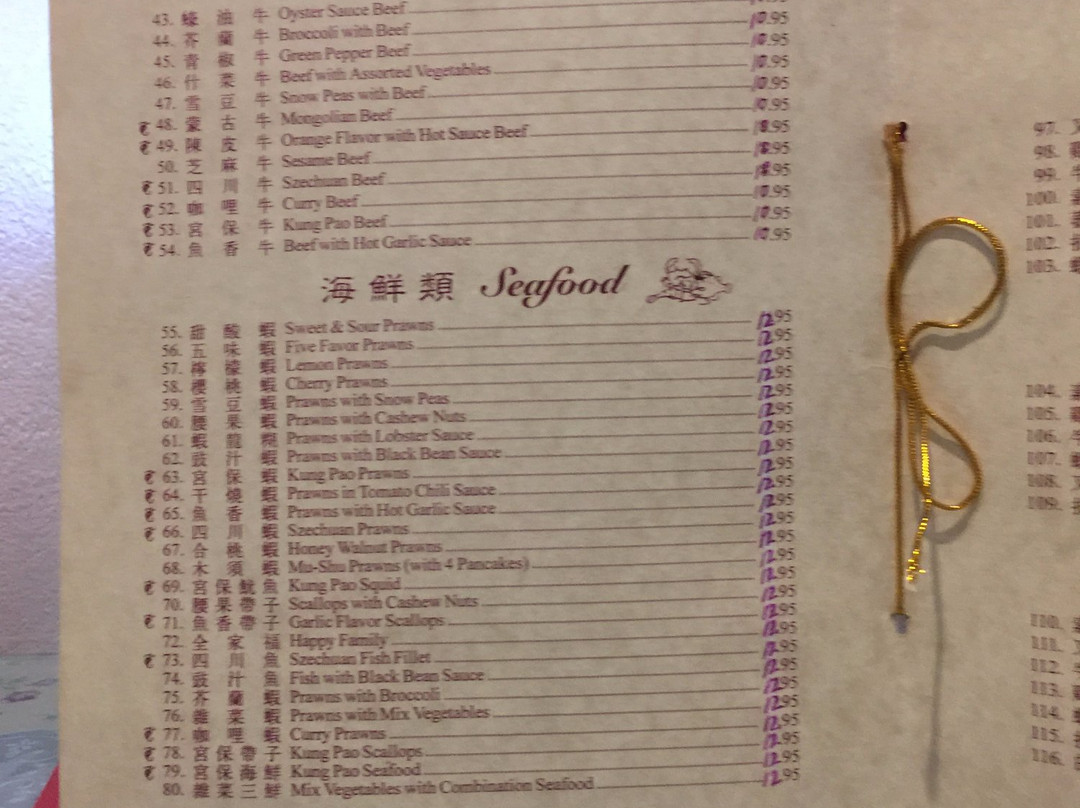 43. 蠔油牛 Oyster Sauce Beef
44. 芥蘭牛 Broccoli with Beef 10.95
45. 青椒牛 Green Pepper Beef 10.95
46. 什菜牛 Beef with Assorted Vegetables 10.95
47. 雪豆牛 Snow Peas with Beef 10.95
48. 蒙古牛 Mongolian Beef 10.95
49. 陳皮牛 Orange Flavor with Hot Sauce Beef .95
50. 芝麻牛 Sesame Beef .95
51. 四川牛 Szechuan Beef .95
52. 咖哩牛 Curry Beef 10.95
53. 宮保牛 Kung Pao Beef 10.95
54. 魚香牛 Beef with Hot Garlic Sauce 10.95
海鮮類 Seafood
55. 甜酸蝦 Sweet & Sour Prawns 12.95
56. 五味蝦 Five Favor Prawns 12.95
57. 檸檬蝦 Lemon Prawns 12.95
58. 櫻桃蝦 Cherry Prawns 12.95
59. 雪豆蝦 Prawns with Snow Peas 12.95
60. 腰果蝦 Prawns with Cashew Nuts 12.95
61. 蝦龍糊 Prawns with Lobster Sauce 12.95
62. 豉汁蝦 Prawns with Black Bean Sauce 12.95
63. 宮保蝦 Kung Pao Prawns 12.95
64. 干燒蝦 Prawns in Tomato Chili Sauce 12.95
65. 魚香蝦 Prawns with Hot Garlic Sauce 12.95
66. 四川蝦 Szechuan Prawns 12.95
67. 合桃蝦 Honey Walnut Prawns 12.95
68. 木須蝦 Mu-Shu Prawns (with 4 Pancakes) 12.95
69. 宮保魷魚 Kung Pao Squid 12.95
70. 腰果帶子 Scallops with Cashew Nuts 12.95
71. 魚香帶子 Garlic Flavor Scallops 12.95
72. 全家福 Happy Family 12.95
73. 四川魚 Szechuan Fish Fillet 12.95
74. 豉汁魚 Fish with Black Bean Sauce 12.95
75. 芥蘭蝦 Prawns with Broccoli 12.95
76. 雜菜蝦 Prawns with Mix Vegetables 12.95
77. 咖哩蝦 Curry Prawns 12.95
78. 宮保帶子 Kung Pao Scallops 12.95
79. 宮保海鮮 Kung Pao Seafood 12.95
80. 雜菜三鮮 Mix Vegetables with Combination Seafood 12.95
97.
98.
99.
100.
101.
102.
103.
104.
105.
106.
107.
108.
109.
110.
111.
112.
113.
114.
115.
116.